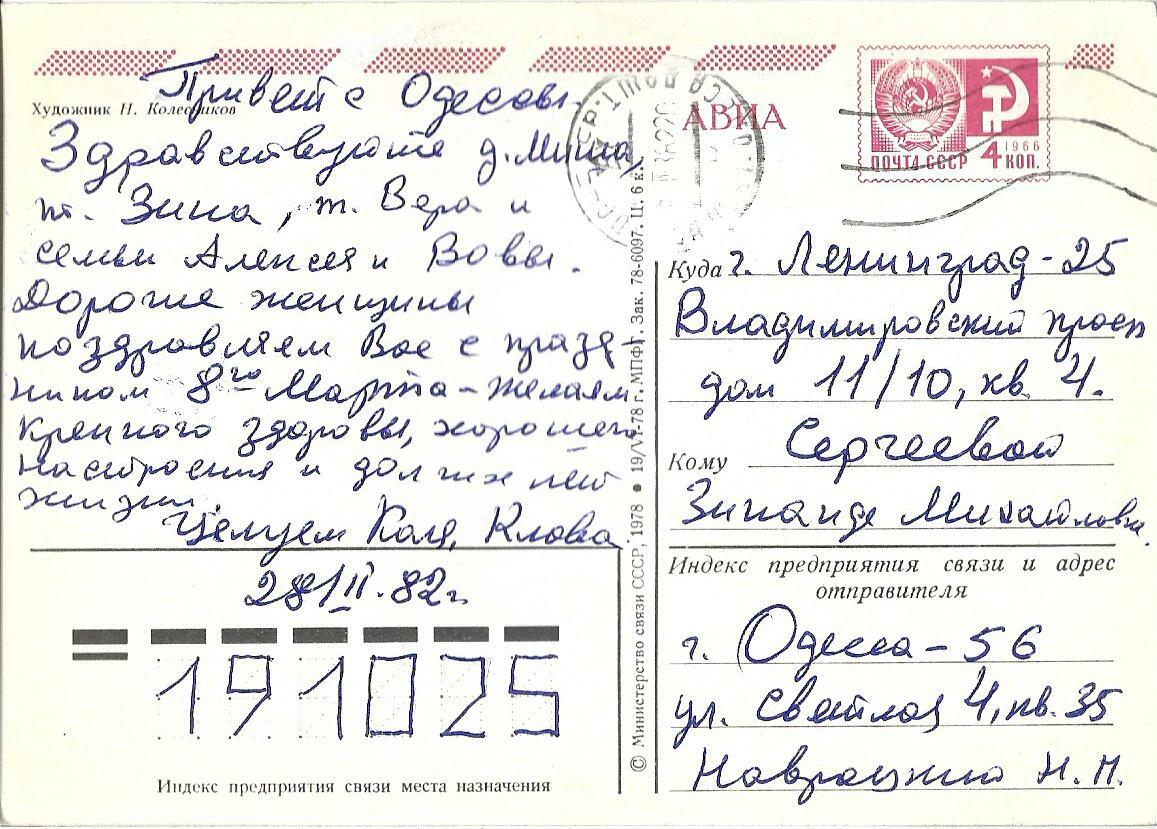 Привет с Одессы,
Художник Н. Колесников
Здравствуйте д. Миша,
т. Зина, т. Вера и
семьи Алексея и Вовы.
Дорогие женщины
поздравляем Вас с празд-
ником 8го Марта – желаем
крепкого здоровья, хорошего
настроения и долгих лет
жизни.
Целуем Коля, Клава
28/II-82г.
191025
Индекс предприятия связи места назначения
© Министерство связи СССР, 1978 • 19/VI-78 г. МПФГ. Зак. 78-6097. Ц. 6 к.
АВИА
ПОЧТА СССР 4 КОП. 1966
Куда г. Ленинград-25
Владимировский просп
дом 11/10, кв. 4.
Сергеевой
Кому
Зинаиде Михайловне.
Индекс предприятия связи и адрес
отправителя
г. Одесса – 56
ул. Светлая 4, кв. 35
Навроцкий Н. П.